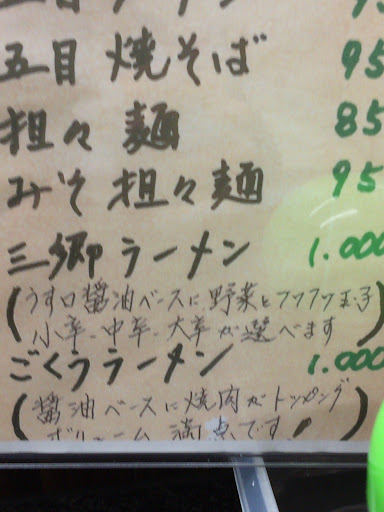 五目 焼そば 95
担々 麺 85
みそ 担々 麺 95
三郷 ラーメン 1.000
(うす口醤油ベースに野菜とフワフワ玉子
小辛-中辛-大辛が選べます)
ごくうラーメン 1.000
(醤油ベースに焼肉がトッピング
ボリューム 満点です!)